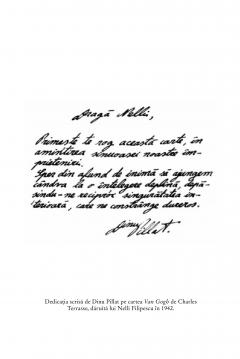 Dragă Nelli,
Primește te rog această carte, în
amintirea sinuoasei noastre îm-
prieteniri.
Sper din afund de inimă să ajungem
cândva la o înțelegere deplină, depă-
șindu-ne reciproc singurătatea in-
terioară, care ne constrânge dureros.
Dinu
Pillat.
Dedicația scrisă de Dinu Pillat pe cartea Van Gogh de Charles
Terrasse, dăruită lui Nelli Filipescu în 1942.